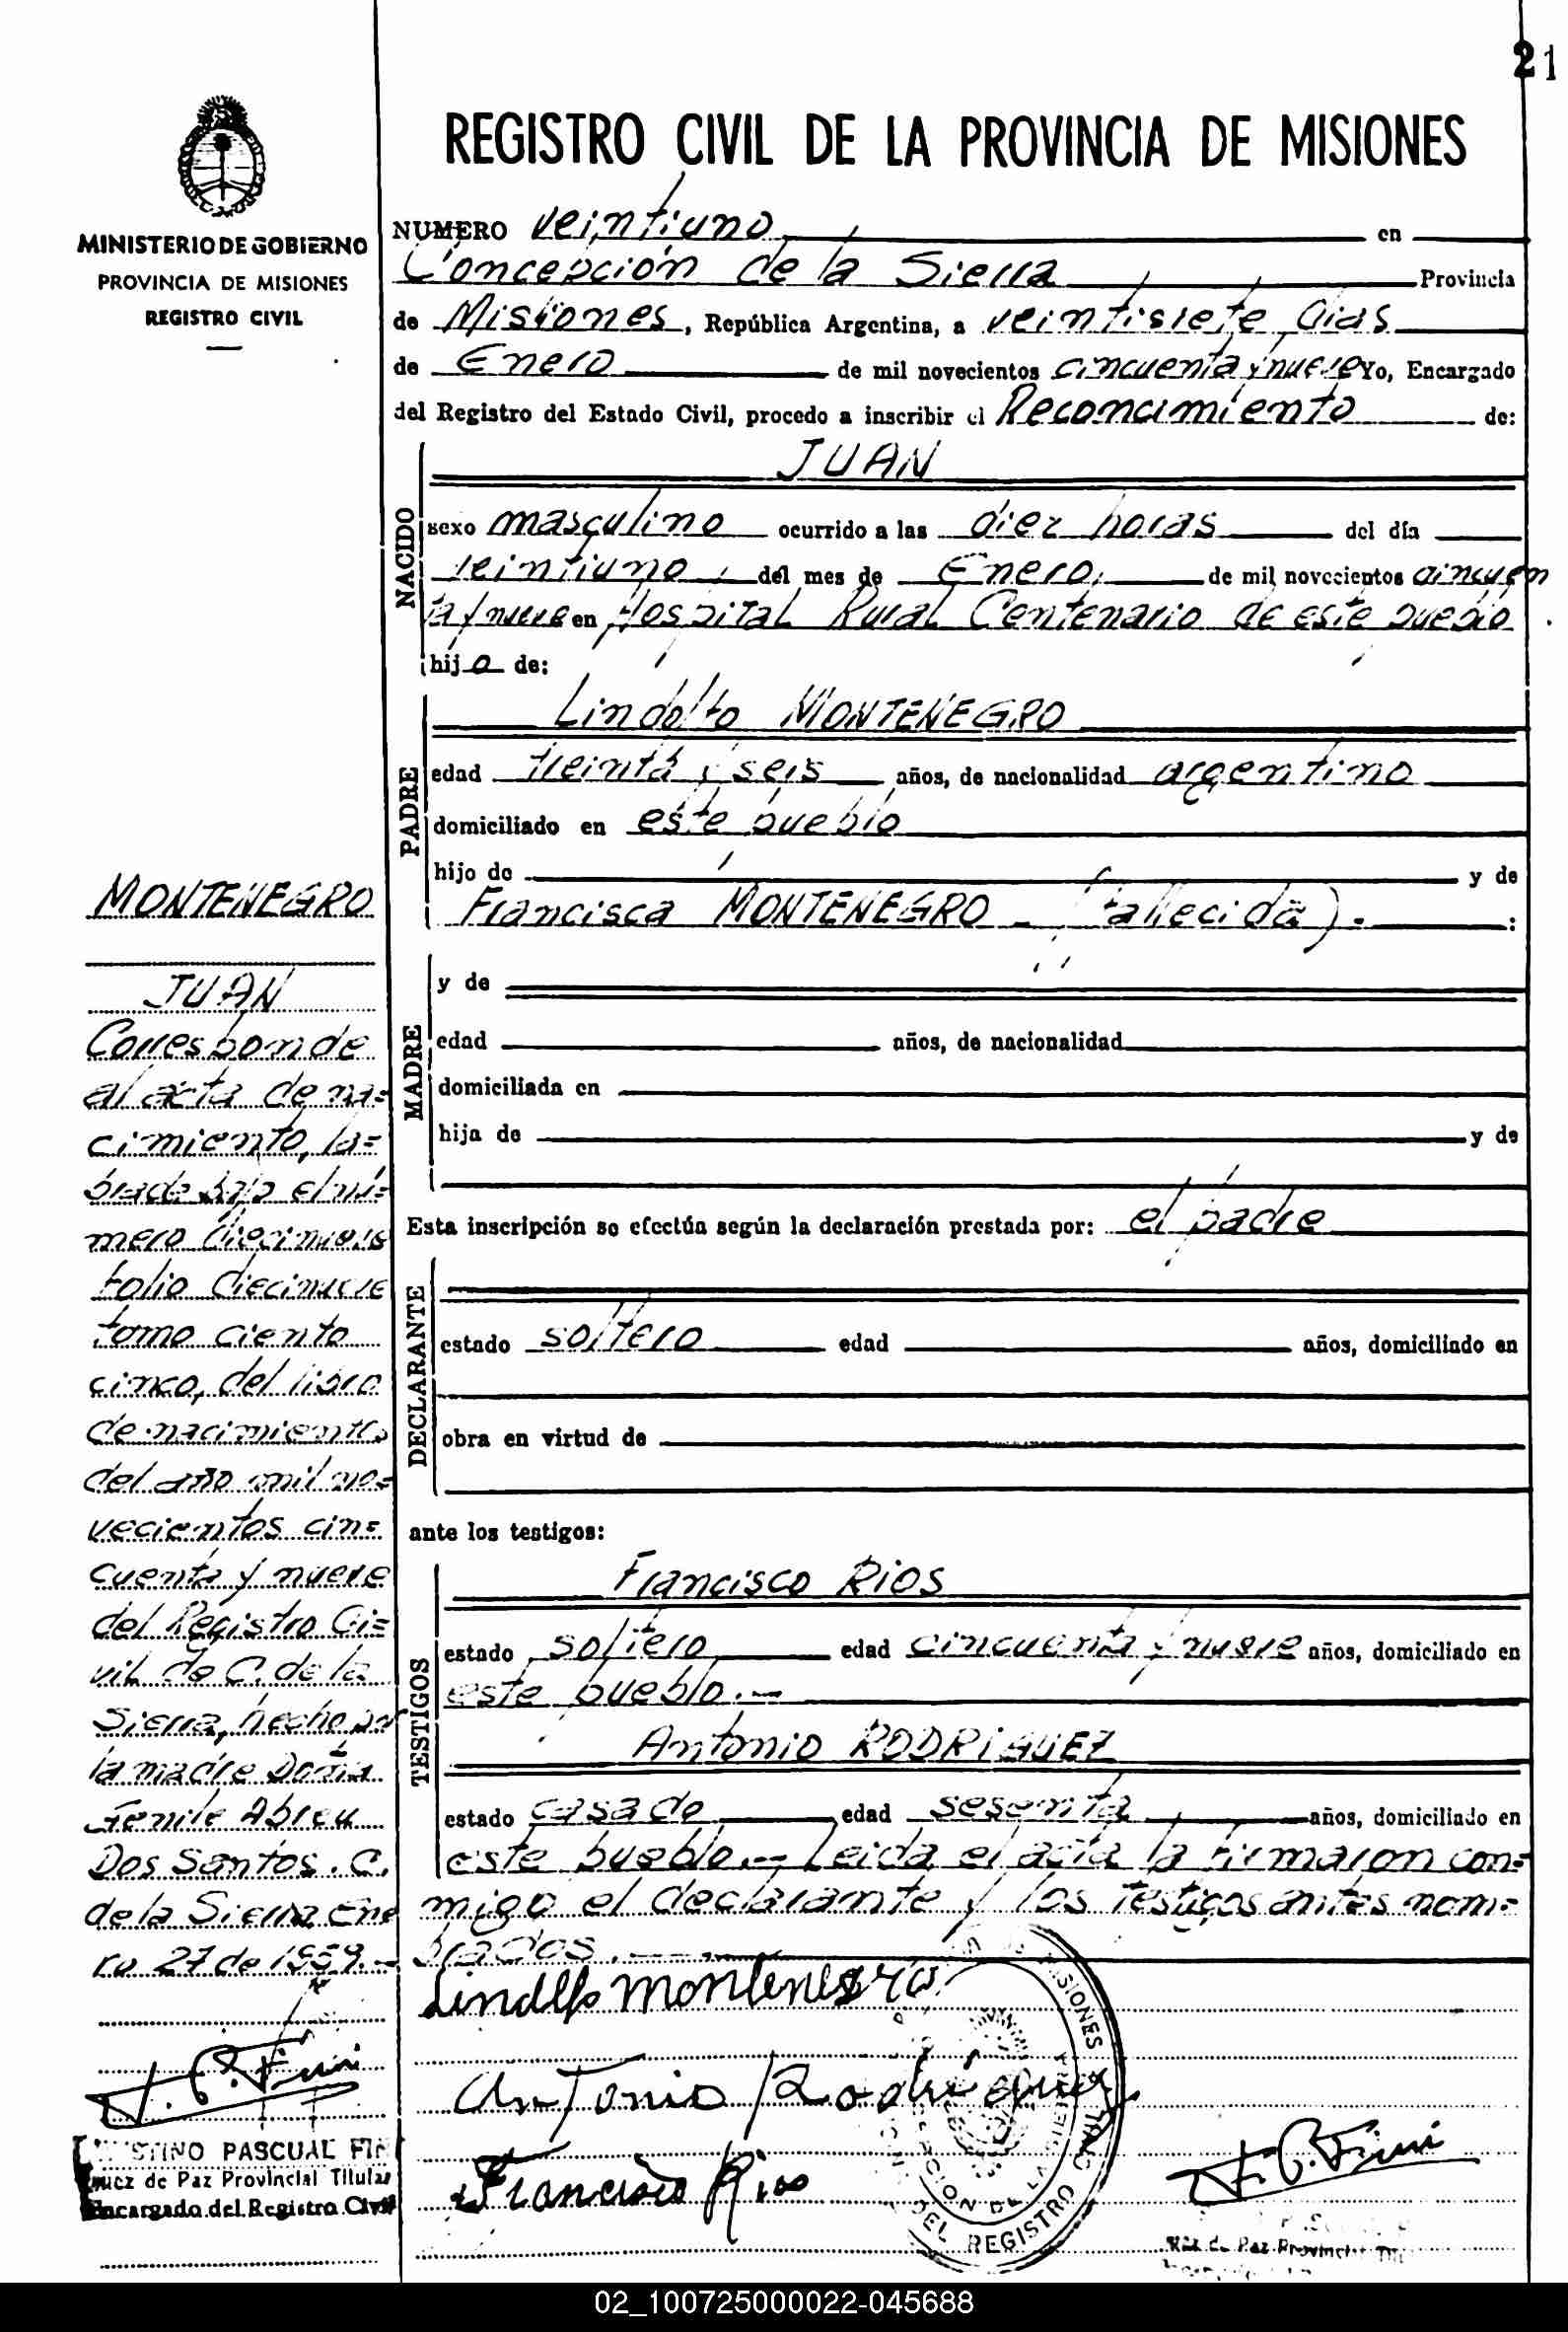 21
REGISTRO CIVIL DE LA PROVINCIA DE MISIONES
MINISTERIO DE GOBIERNO
PROVINCIA DE MISIONES
REGISTRO CIVIL
NUMERO veintiuno en
Concepción de la Sierra Provincia
de Misiones, República Argentina, a veintisiete días
de Enero de mil novecientos cincuenta y nueve Yo, Encargado
del Registro del Estado Civil, procedo a inscribir el Reconocimiento de:
NACIDO
JUAN
sexo masculino ocurrido a las diez horas del día
veintiuno del mes de Enero, de mil novecientos cincuen
ta y nueve en Hospital Rural Centenario de este pueblo
hijo de:
PADRE
Lindolfo MONTENEGRO
edad treinta y seis años, de nacionalidad argentino
domiciliado en este pueblo
hijo de y de
Francisca MONTENEGRO - (fallecida).- :
MADRE
y de
edad años, de nacionalidad
domiciliada en
hija de y de
Esta inscripción se efectúa según la declaración prestada por: el padre
DECLARANTE
estado soltero edad años, domiciliado en
obra en virtud de
ante los testigos:
TESTIGOS
Francisco RIOS
estado soltero edad cincuenta y nueve años, domiciliado en
este pueblo.-
Antonio RODRIGUEZ
estado casado edad sesenta años, domiciliado en
este pueblo.- Leida el acta la firmaron con=
migo el declarante y los testigos antes nom=
brados.
Lindolfo montenegro
Antonio Rodriguez
Francisco Rios
MONTENEGRO
JUAN
Corresponde
al acta de na=
cimiento, la=
brada bajo el nú=
mero diecinueve
folio diecinueve
tomo ciento
cinco, del libro
de nacimientos
del año mil no=
vecientos cin=
cuenta y nueve
del Registro Ci=
vil de C. de la
Sierra, hecho por
la madre Doña
Abreu
Dos Santos. C.
de la Sierra, Ene
ro 27 de 1959.-
PASCUAL
Juez de Paz Provincial Titular
Encargado del Registro Civil
MISIONES
DEL REGISTRO CIVIL
DE LA SIERRA
Juez de Paz Provincial
02_100725000022-045688